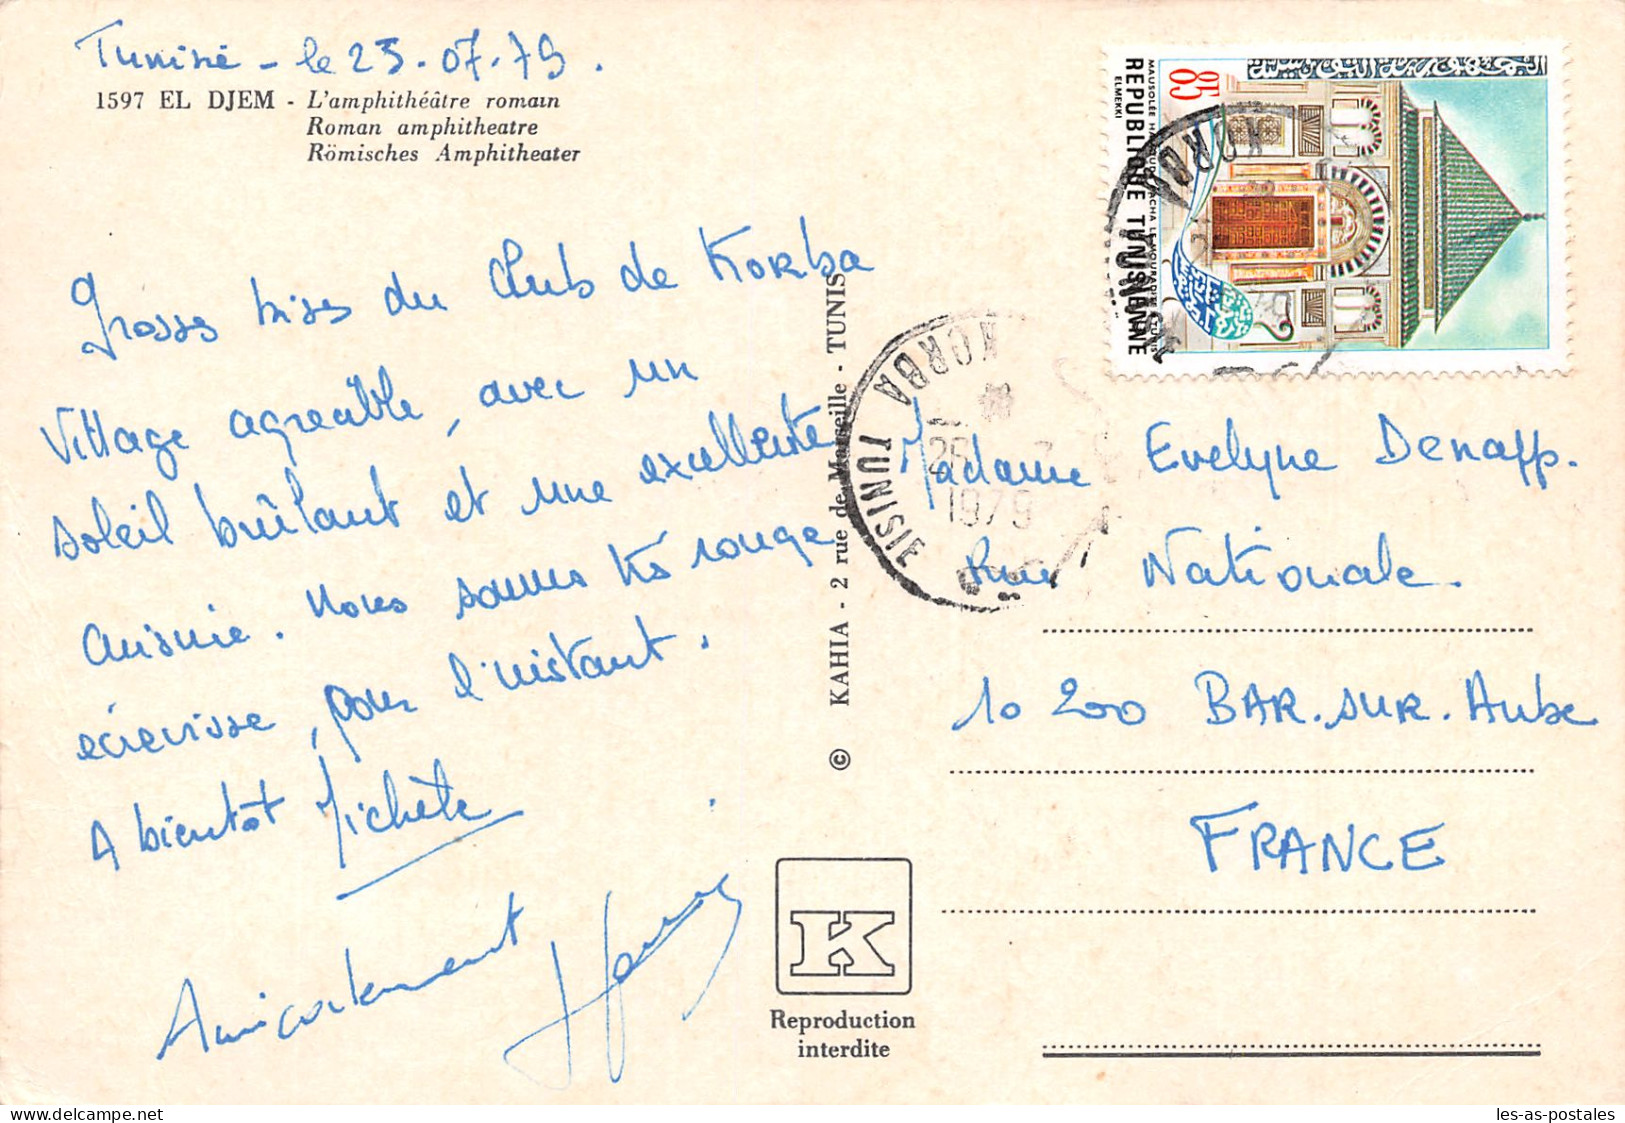 Tunisie - le 23.07.79.
1597 EL DJEM - L'amphithéâtre romain
Roman amphitheatre
Römisches Amphitheater
Grosses bises du Club de Korba
Village agréable, avec un
soleil brûlant et une excellente
cuisine. Nous sommes très rouge
écrevisse, pour l'instant.
A bientôt Michèle
Amicalement
© KAHIA - 2 rue de Marseille - TUNIS
K
Reproduction
interdite
85
MAUSOLÉE HAMOUDA PACHA LE MOURADITE TUNIS
REPUBLIQUE TUNISIENNE
ELMEKKI
الجمهورية التونسية
KORBA
TUNISIE
KORBA TUNISIE
26 7
1979
Madame Evelyne Denapp.
Rue Nationale.
10 200 BAR.SUR.Aube
FRANCE
delcampe.net
les-as-postales